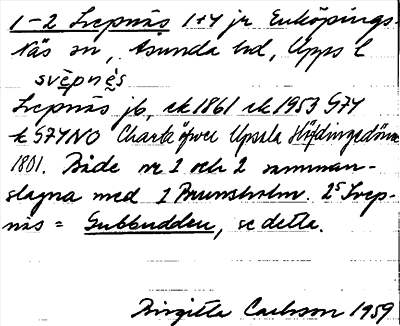 1-2 Svepnäs 1+4 jr Enköpings-
Näs sn, Åsunda hd, Upps l
svèpnés
Svepnäs jb, ek 1861 ek 1953 G7Y
k G7YNO Charta öfwer Upsala Höfdingedöme
1801. Både nr 1 och 2 samman-
slagna med 1 Brunsholm. 2S Svep-
näs = Gubbudden, se detta.
Birgitta Carlsson 1959